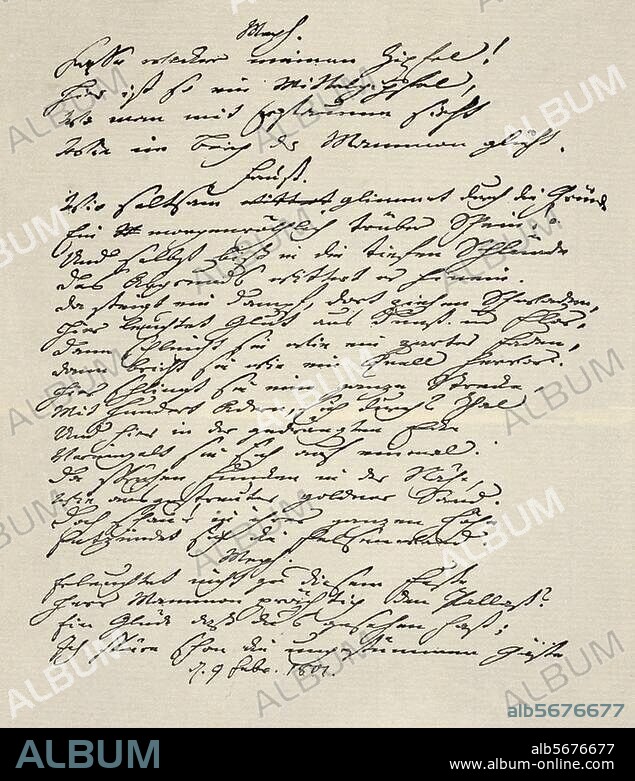 Meph.
Fasse wacker meinen Zipfel!
Hier ist so ein Mittelgipfel,
Wo man mit Erstaunen sieht
Wie im Berg der Mammon glüht.
Faust.
Wie seltsam glimmert durch die Gründe
Ein morgenröthlich trüber Schein!
Und selbst bis in die tiefen Schlünde
Des Abgrunds wittert er hinein.
Da steigt ein Dampf, dort ziehen Schwaden,
Hier leuchtet Glut aus Dunst und Flor,
Dann schleicht sie wie ein zarter Faden,
Dann bricht sie wie ein Quell hervor.
Hier schlingt sie eine ganze Strecke
Mit hundert Adern, sich durchs Thal
Und hier in der gedrängten Ecke
Vereinzelt sie sich auf einmal.
Da sprühen Funken in der Nähe,
Wie ausgestreuter goldner Sand.
Doch schau! in ihrer ganzen Höhe
Entzündet sich die Felsenwand.
Meph.
Erleuchtet nicht zu diesem Feste
Herr Mammon prächtig den Pallast?
Ein Glück daß du's gesehen hast;
Ich spüre schon die ungestümmen Gäste
d. 9 Febr. 1801.
alb5676677
ALBUM
alb5676677
www.album-online.com